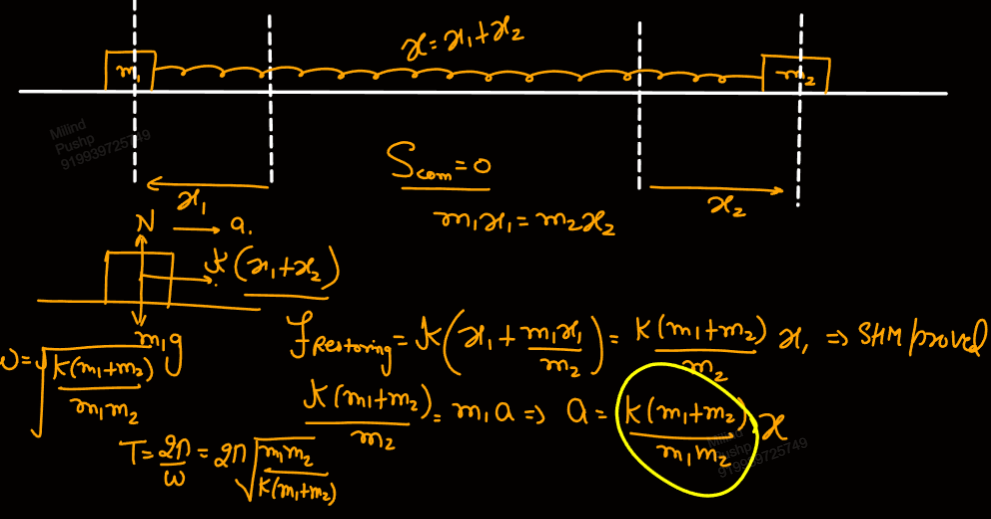 x = x₁ + x₂
m₁
m₂
Milind
Pushp
919939725749
S_com = 0
x₁
x₂
m₁x₁ = m₂x₂
N
a₁
K(x₁+x₂)
m₁g
f_Restoring = K(x₁ + m₁x₁/m₂) = K(m₁+m₂)/m₂ x₁ ⇒ SHM proved
ω = √(K(m₁+m₂)/m₁m₂)
K(m₁+m₂)/m₂ = m₁a ⇒ a = K(m₁+m₂)/m₁m₂ · x
Milind
Pushp
919939725749
T = 2π/ω = 2π√(m₁m₂/K(m₁+m₂))